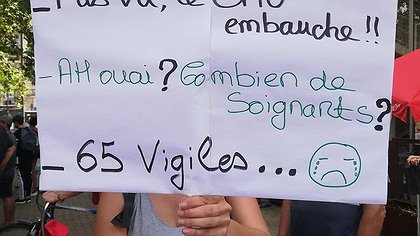 _ T'as vu, le CHU
embauche !!
- AH ouai ? Combien de
Soignants ?
_ 65 Vigiles...